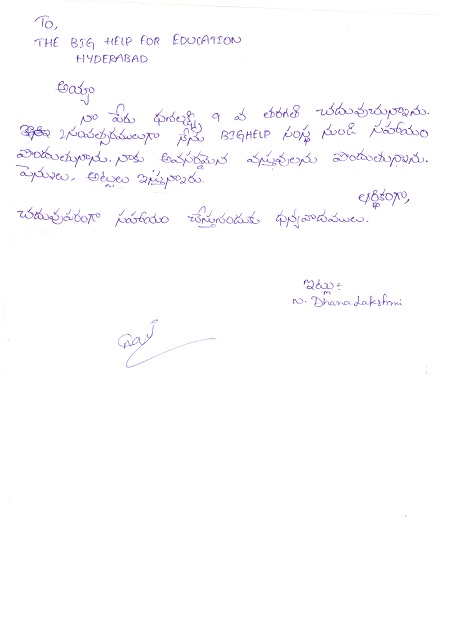 To,
THE BIG HELP FOR EDUCATION
HYDERABAD
అయ్యా
నా పేరు ధనలక్ష్మి 9 వ తరగతి చదువుచున్నాను.
2 సంవత్సరములుగా నేను BIGHELP సంస్థ నుండి సహాయం
పొందుతున్నాను. నాకు అవసరమైన వస్తువులను పొందుతున్నాను.
పెన్నులు, అట్టలు ఇస్తున్నారు.
ఆర్థికంగా,
చదువుపరంగా సహాయం చేస్తునందుకు ధన్యవాదములు.
ఇట్లు:
N. Dhana Lakshmi